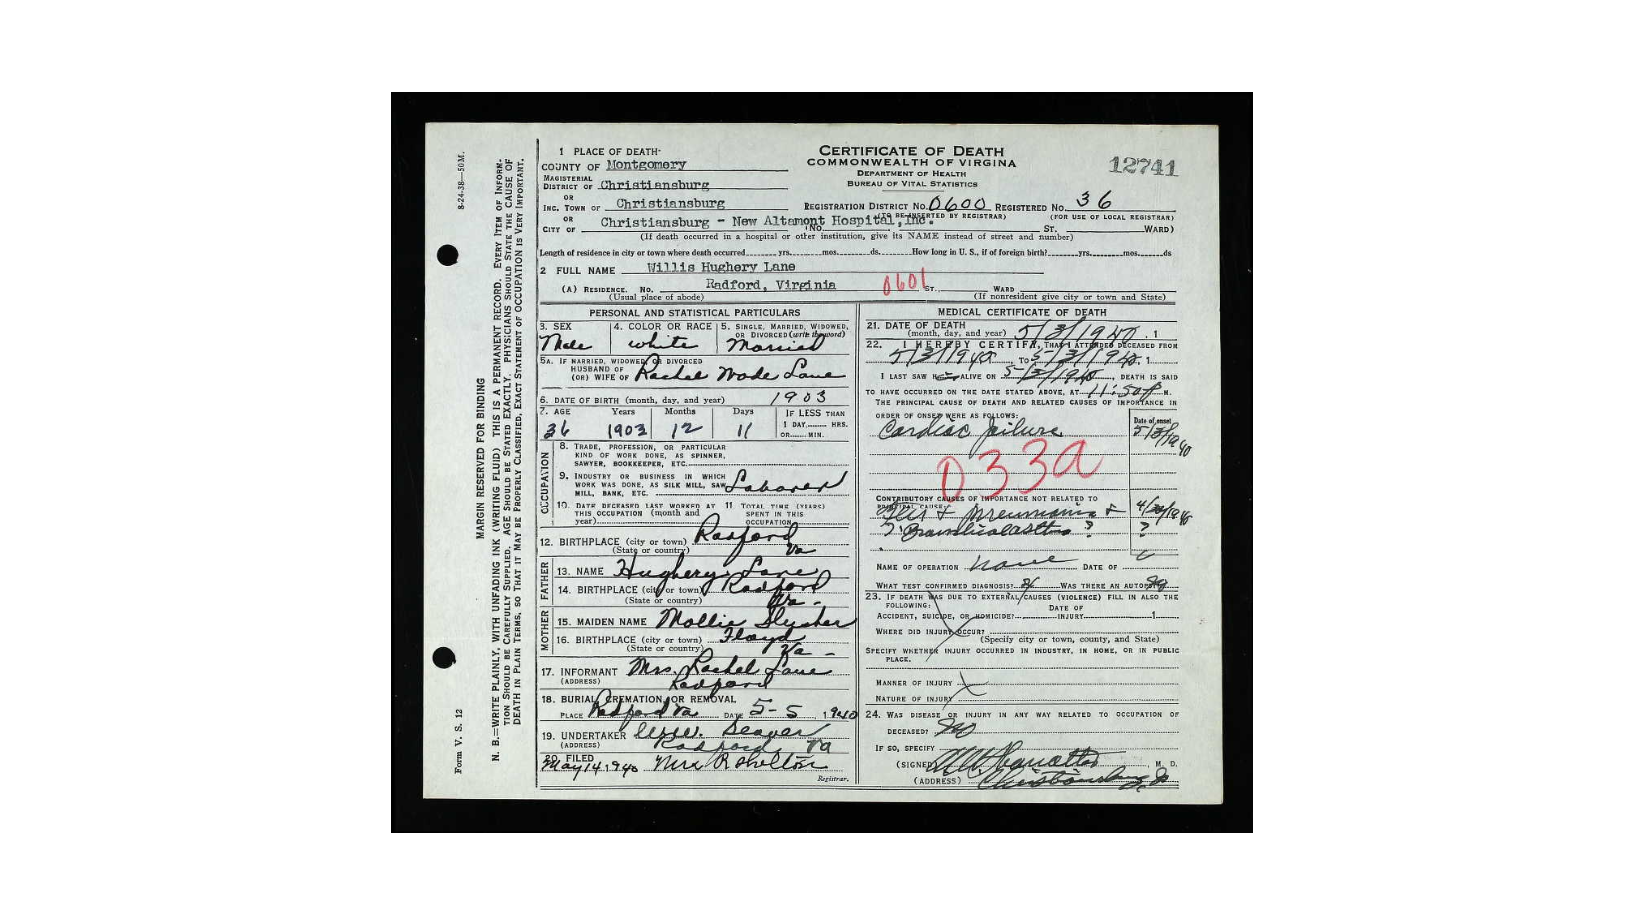 8-24-38—50M.
MARGIN RESERVED FOR BINDING
N. B.—WRITE PLAINLY, WITH UNFADING INK (WRITING FLUID) THIS IS A PERMANENT RECORD. EVERY ITEM OF INFORM-
TION SHOULD BE CAREFULLY SUPPLIED. AGE SHOULD BE STATED EXACTLY. PHYSICIANS SHOULD STATE THE CAUSE OF
DEATH IN PLAIN TERMS, SO THAT IT MAY BE PROPERLY CLASSIFIED. EXACT STATEMENT OF OCCUPATION IS VERY IMPORTANT.
Form V. S. 12
1 PLACE OF DEATH
COUNTY OF Montgomery
MAGISTERIAL
DISTRICT OF Christiansburg
OR
INC. TOWN OF Christiansburg
OR
CITY OF Christiansburg - New Altamont Hospital, Inc.
No. ST. WARD)
(If death occurred in a hospital or other institution, give its NAME instead of street and number)
CERTIFICATE OF DEATH
COMMONWEALTH OF VIRGINIA
DEPARTMENT OF HEALTH
BUREAU OF VITAL STATISTICS
12741
REGISTRATION DISTRICT No. 0600 REGISTERED No. 36
(TO BE INSERTED BY REGISTRAR) (FOR USE OF LOCAL REGISTRAR)
Length of residence in city or town where death occurred yrs. mos. ds. How long in U. S., if of foreign birth? yrs. mos. ds
2 FULL NAME Willis Hughery Lane
(A) RESIDENCE. No. Radford, Virginia 0601 ST. WARD
(Usual place of abode) (If nonresident give city or town and State)
PERSONAL AND STATISTICAL PARTICULARS
3. SEX Male
4. COLOR OR RACE white
5. SINGLE, MARRIED, WIDOWED, OR DIVORCED (write the word) Married
5A. IF MARRIED, WIDOWED, OR DIVORCED
HUSBAND OF
(OR) WIFE OF Rachel Wade Lane
6. DATE OF BIRTH (month, day, and year) 1903
7. AGE Years Months Days IF LESS THAN
36 1903 12 11 1 DAY, HRS.
OR MIN.
OCCUPATION
8. TRADE, PROFESSION, OR PARTICULAR
KIND OF WORK DONE, AS SPINNER,
SAWYER, BOOKKEEPER, ETC.
9. INDUSTRY OR BUSINESS IN WHICH
WORK WAS DONE, AS SILK MILL, SAW
MILL, BANK, ETC. Laborer
10. DATE DECEASED LAST WORKED AT THIS OCCUPATION (month and year)
11 TOTAL TIME (YEARS) SPENT IN THIS OCCUPATION
12. BIRTHPLACE (city or town) Radford
(State or country) Va
FATHER
13. NAME Hughery Lane
14. BIRTHPLACE (city or town) Radford
(State or country) Va -
MOTHER
15. MAIDEN NAME Mollie Slusher
16. BIRTHPLACE (city or town) Floyd
(State or country) Va -
17. INFORMANT Mrs. Rachel Lane
(ADDRESS) Radford
18. BURIAL, CREMATION, OR REMOVAL
PLACE Radford Va DATE 5-5, 1940
19. UNDERTAKER Seaver
(ADDRESS) Radford Va
20. FILED May 14, 1940 Mrs R Shelton
Registrar.
MEDICAL CERTIFICATE OF DEATH
21. DATE OF DEATH
(month, day, and year) 5/3/1940, 1
22. I HEREBY CERTIFY, THAT I ATTENDED DECEASED FROM
5/3/1940, TO 5-/3/1940, 1
I LAST SAW H ALIVE ON 5-/3/1940, DEATH IS SAID
TO HAVE OCCURRED ON THE DATE STATED ABOVE, AT 11:50P M.
THE PRINCIPAL CAUSE OF DEATH AND RELATED CAUSES OF IMPORTANCE IN
ORDER OF ONSET WERE AS FOLLOWS:
Date of onset
Cardiac failure 5/3/1940
033a
CONTRIBUTORY CAUSES OF IMPORTANCE NOT RELATED TO
PRINCIPAL CAUSE:
Flu & pneumonia &
? ?
NAME OF OPERATION none DATE OF
WHAT TEST CONFIRMED DIAGNOSIS? WAS THERE AN AUTOPSY? No
23. IF DEATH WAS DUE TO EXTERNAL CAUSES (VIOLENCE) FILL IN ALSO THE
FOLLOWING:
ACCIDENT, SUICIDE, OR HOMICIDE? DATE OF INJURY 1
WHERE DID INJURY OCCUR?
(Specify city or town, county, and State)
SPECIFY WHETHER INJURY OCCURRED IN INDUSTRY, IN HOME, OR IN PUBLIC
PLACE.
MANNER OF INJURY
NATURE OF INJURY
24. WAS DISEASE OR INJURY IN ANY WAY RELATED TO OCCUPATION OF
DECEASED? No
IF SO, SPECIFY
(SIGNED) , M. D.
(ADDRESS) Christiansburg, Va